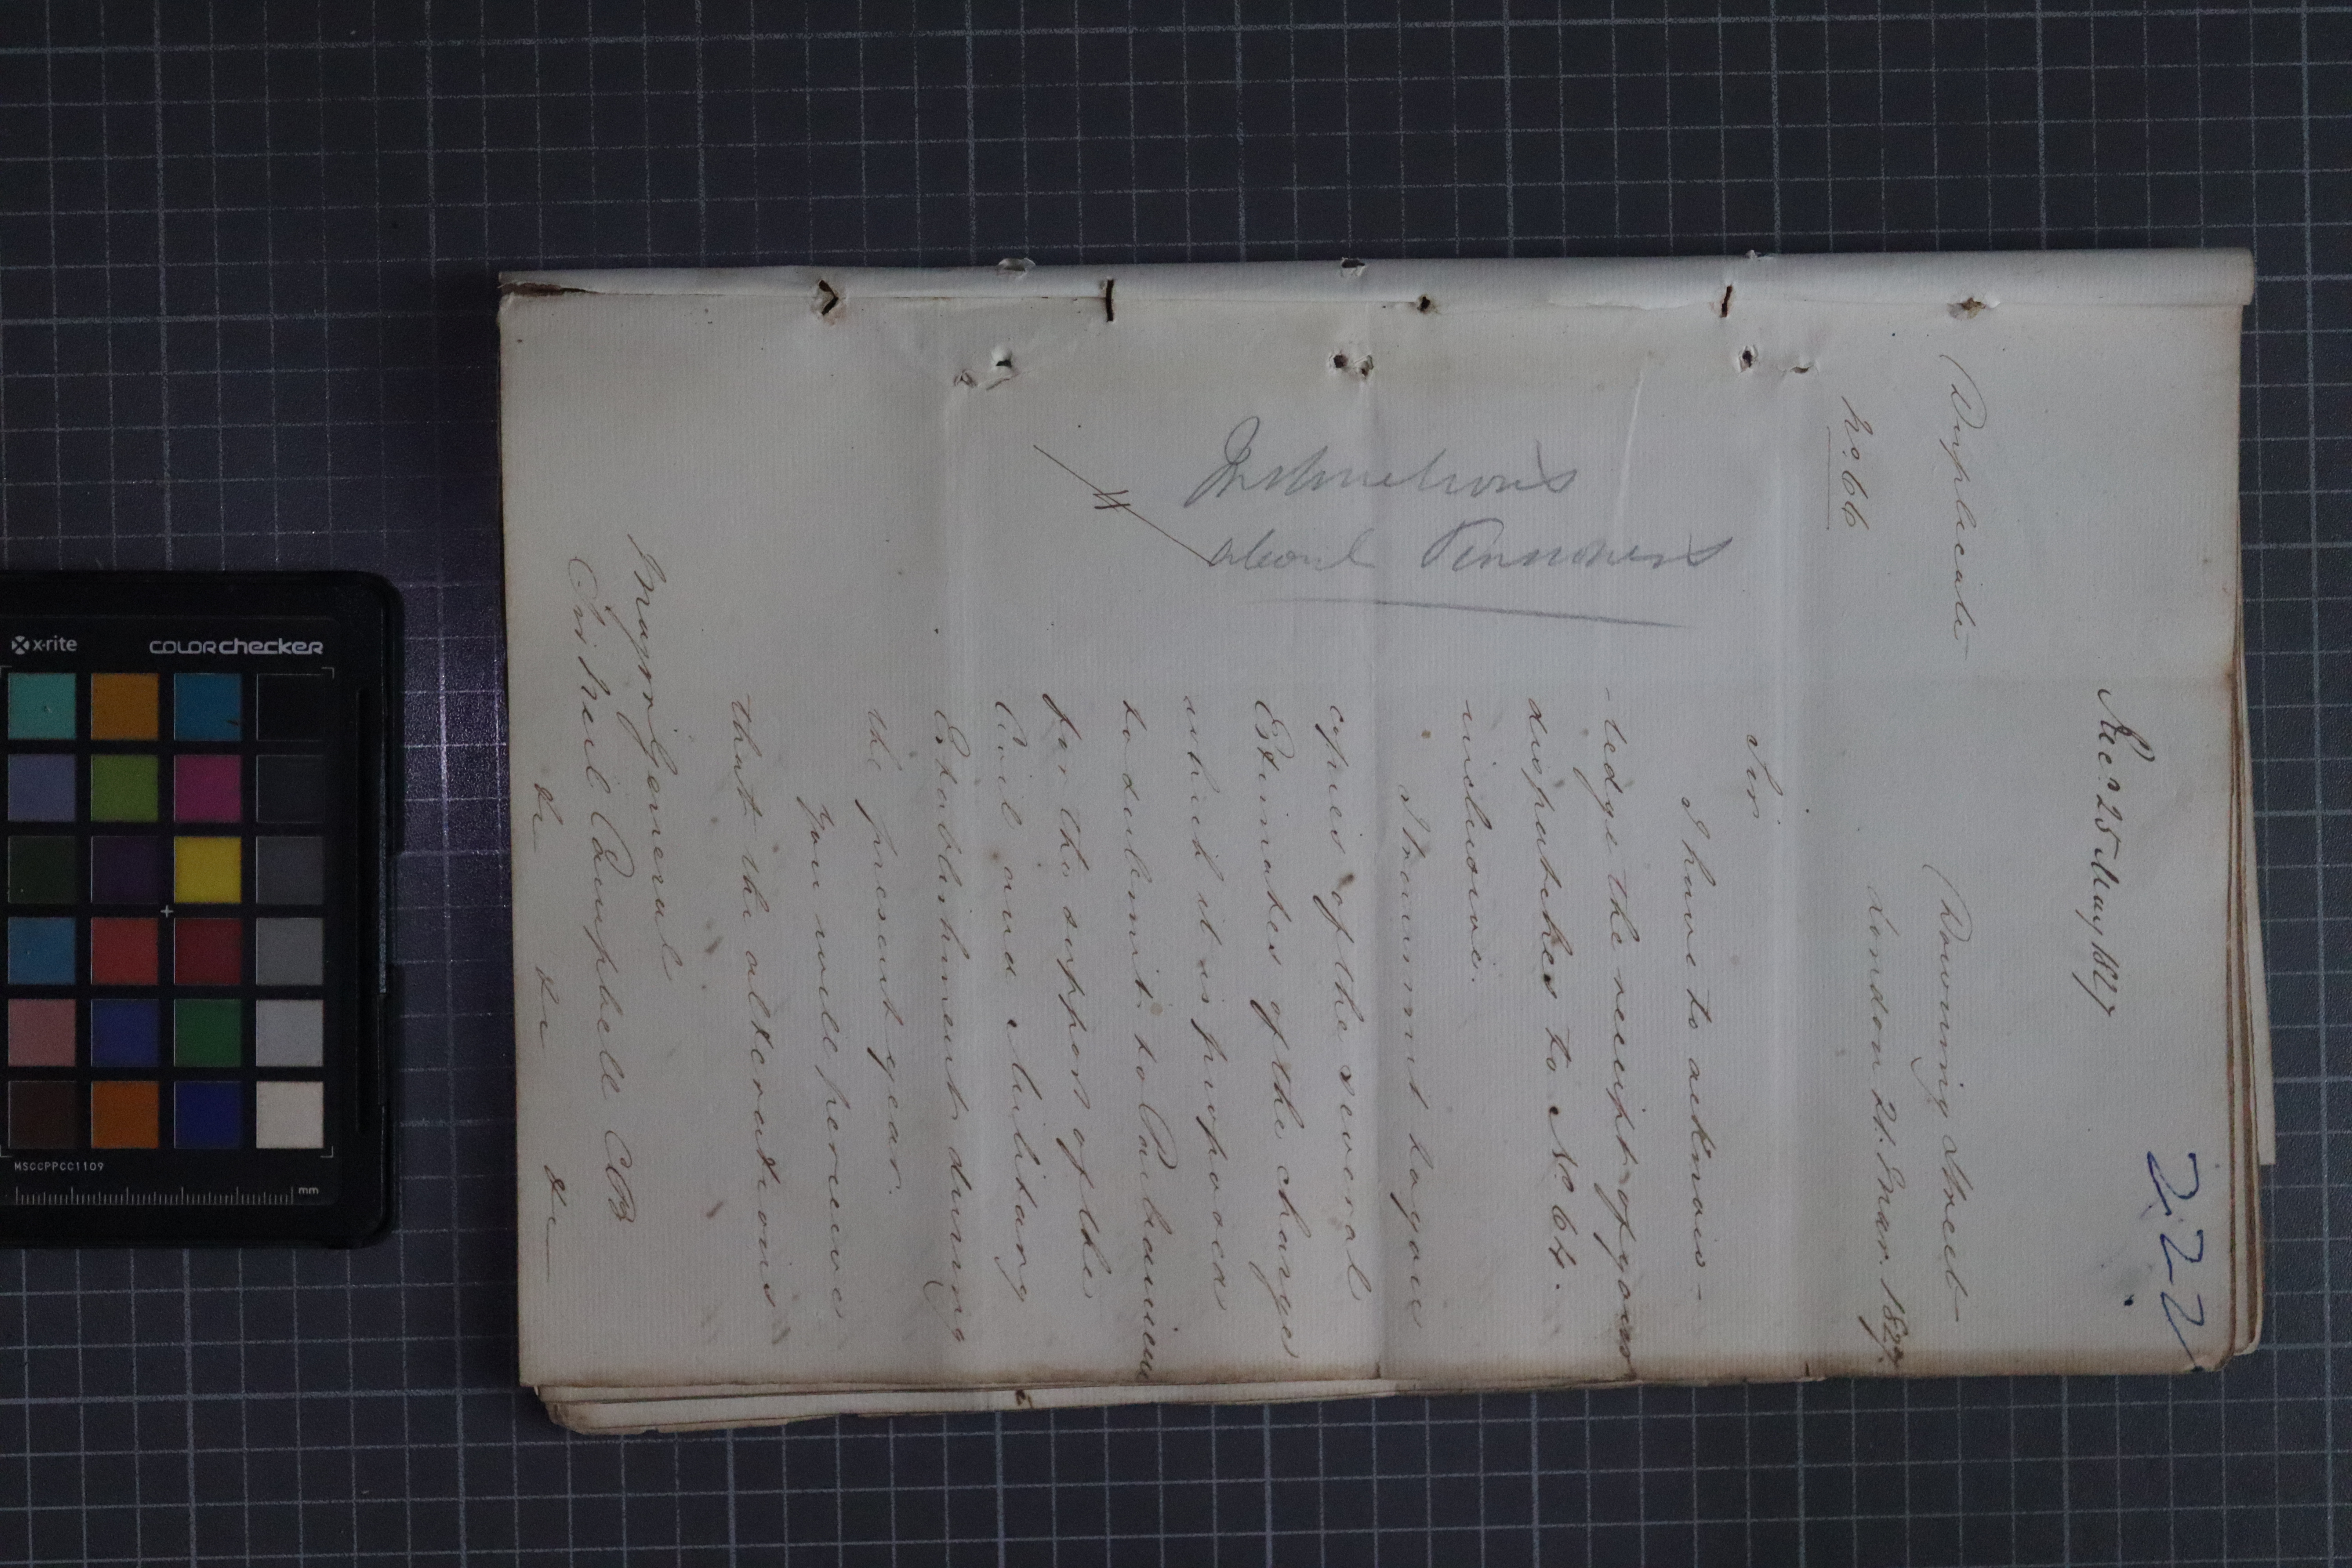 222
Rec.d 25 May 1827
Duplicate
Downing Street
No. 66
London 21. Mar. 1827.
Sir.
I have to acknow-
-ledge the receipt of your
dispatches to No. 64.
inclusive.
I transmit to you
copies of the several
Estimates of the charges
which it is proposed
to submit to Parliament
for the support of the
Civil and Military
Establishments during
the present year.
You will perceive
that the alterations
Major General
Sir Neil Campbell CB
&c &c &c
Instructions
about Pensioners
x-rite
COLORchecker
MSCCPPCC1109
mm